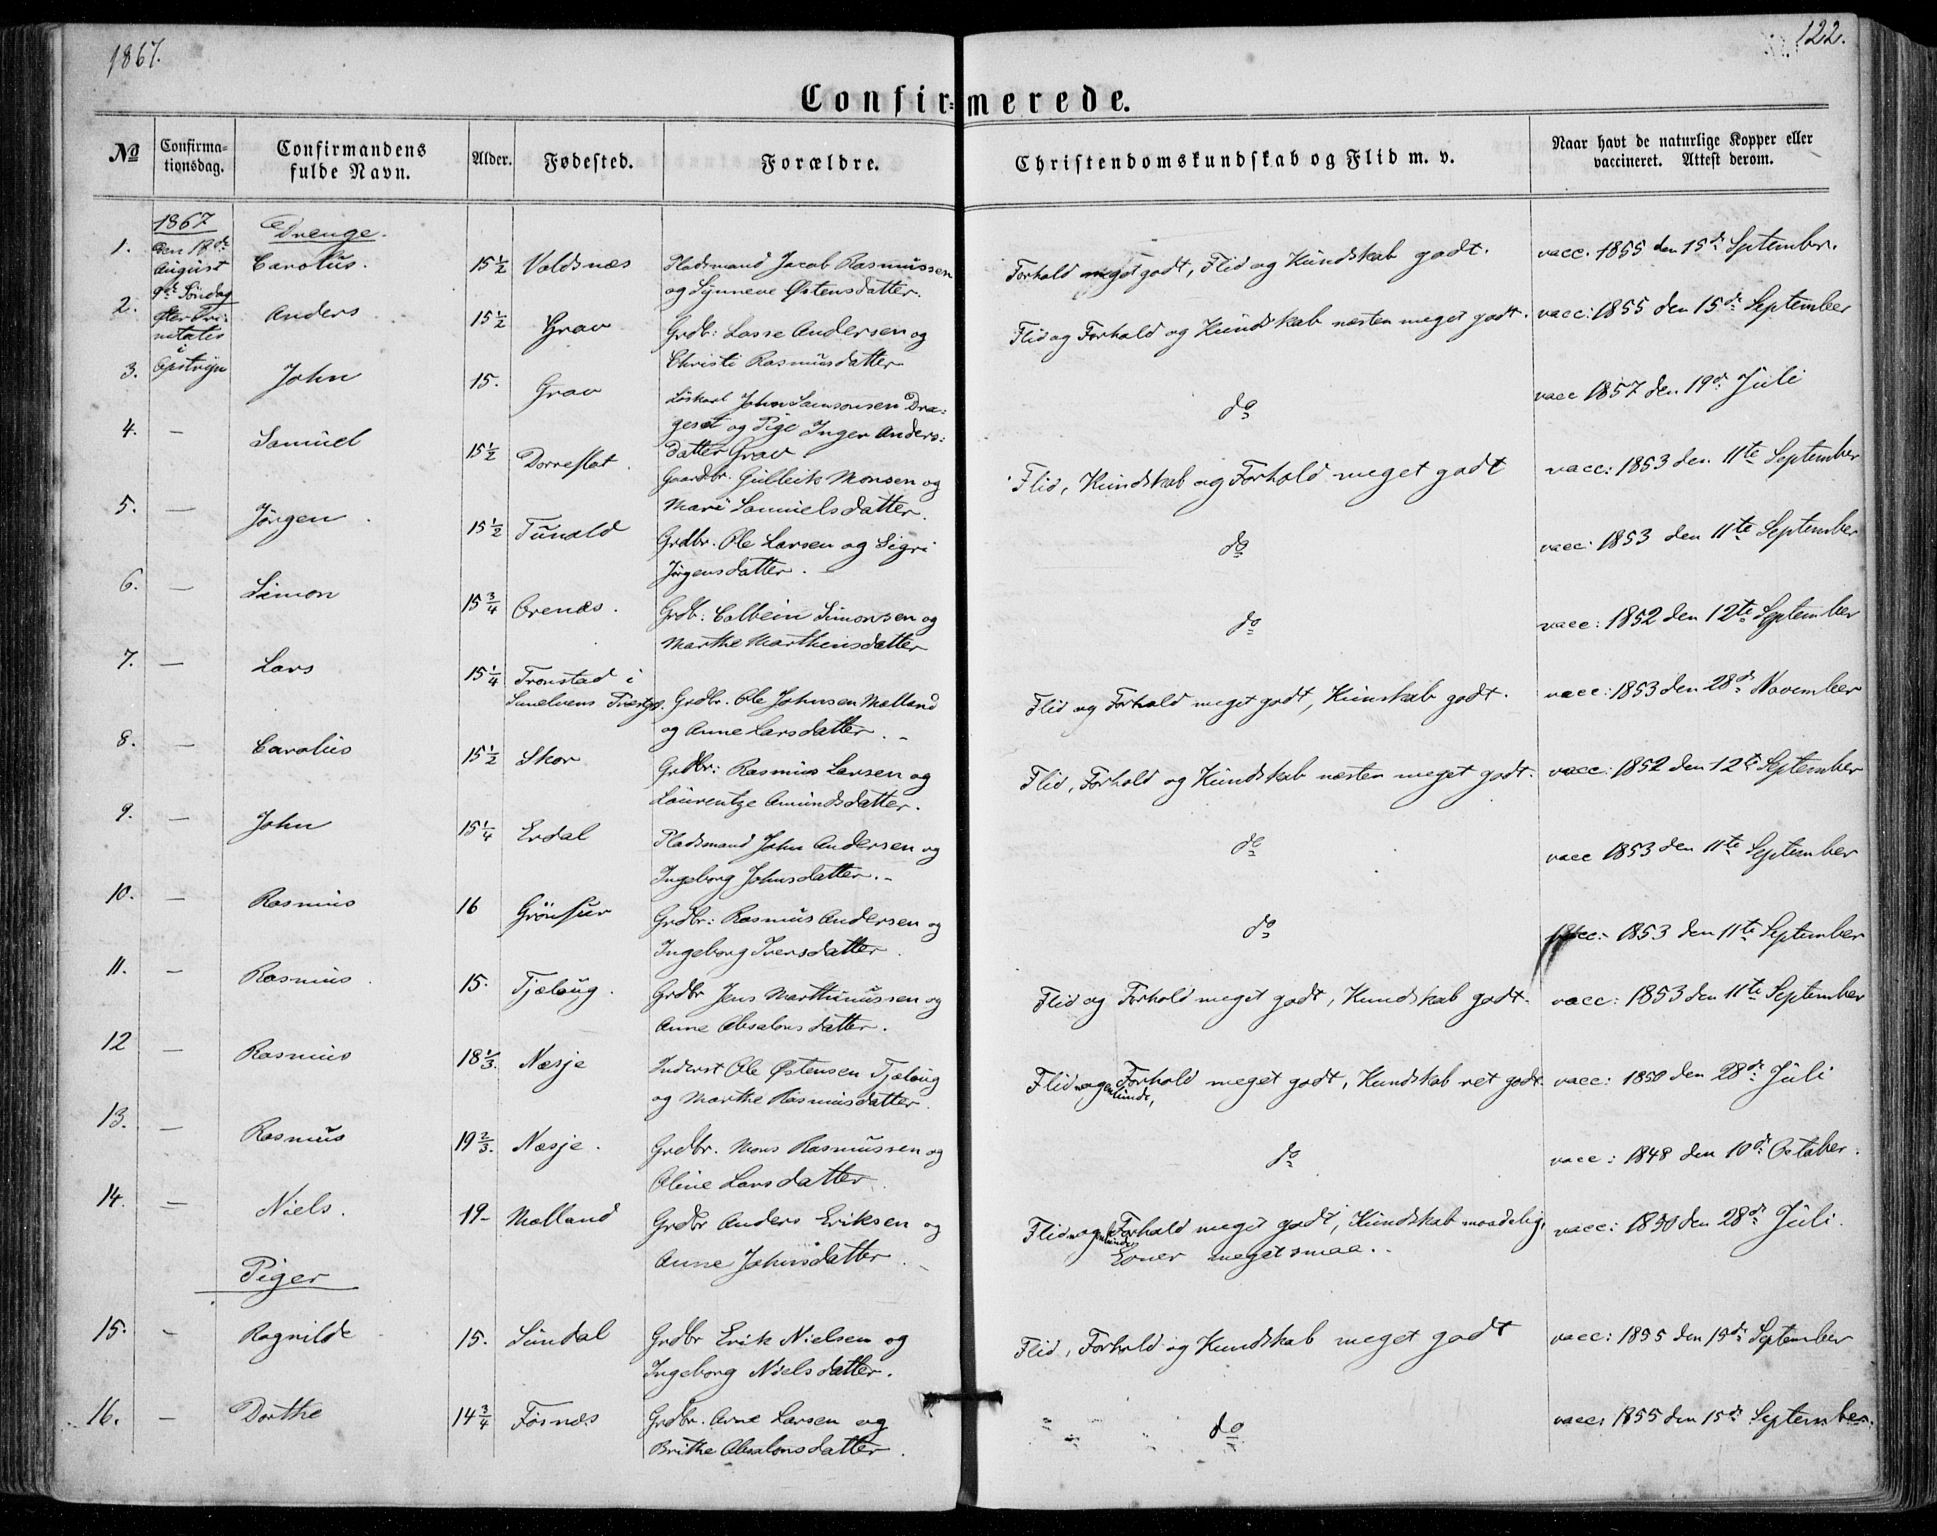 1867.
122.
Confirmerede.
No
Confirmationsdag.
Confirmandens fulde Navn.
Alder.
Fødested.
Forældre.
Christendomskundskab og Flid m. v.
Naar havt de naturlige Kopper eller vaccineret. Attest derom.
1867
Drenge.
1. den 18de August Carolus. 15 1/2 Voldsnæs Pladsmand Jacob Rasmussen
og Synneve Østensdatter.
Forhold meget godt, Flid og Kundskab godt. vacc. 1855 den 15de September.
9de Søndag
2. efter Tri- Anders 15 1/2 Grav Grdb: Lasse Andersen og
nitatis
i
Christi Rasmusdatter
Flid og Forhold og Kundskab næsten meget godt. vacc: 1855 den 15de September
3. Opstryn John 15. Grav Løskarl John Samsonsen Dra-
geset og Pige Inger Anders-
datter Grav
do vacc 1857 den 19de Juli
4. – Samuel 15 1/2 Dorreflot. Gaardbr. Gulleik Monsen og
Mari Samuelsdatter.
Flid, Kundskab og Forhold meget godt vacc: 1853 den 11te September
5. – Jørgen. 15 1/2 Tunold Grdbr. Ole Larsen og Sigri
Jørgensdatter.
do vacc: 1853 den 11te September
6. – Simon 15 3/4 Ørenes. Grdb: Colbein Simonsen og
Marthe Marthinsdatter
do vacc: 1852 den 12te September
7. – Lars 15 1/4 Tronstad i
Sunelvens Prestgj. Grdbr. Ole Johnsen Mælland
og Anne Larsdatter. –
Flid og Forhold meget godt, Kunskab godt. vacc: 1853 den 28de November
8. – Carolus 15 1/2 Skor Grdbr: Rasmus Larsen og
Laurentze Amundsdatter.
Flid, Forhold og Kundskab næsten meget godt. vacc: 1852 den 12te September
9. – John 15 1/4 Erdal Pladsmand John Andersen og
Ingeborg Johnsdatter. –
do vacc 1853 den 11te September
10. – Rasmus 16 Grønfur Grdbr: Rasmus Andersen og
Ingeborg Iversdatter.
do vacc: 1853 den 11te September
11. – Rasmus. 15. Tjælaug. Grdbr Jens Marthinussen og
Anne Absalonsdatter.
Flid og Forhold meget godt, Kundskab godt. vacc: 1853 den 11te September
12 – Rasmus 18 1/3. Næsje Inderst Ole Østensen Tjælaug
og Marthe Rasmusdatter.
Flid nogenlunde, Forhold meget godt, Kundskab ret godt. vacc: 1850 den 28de Juli
13. – Rasmus 19 2/3. Næsje. Grdbr. Mons Rasmussen og
Oline Larsdatter.
do vacc: 1848 den 10de October.
14. – Niels. 19– Mælland Grdbr Anders Eriksen og
Anne Johnsdatter. –
Flid nogenlunde, Forhold meget godt, Kundskab maadelig, vacc: 1850 den 28de Juli.
Evner meget smaa.
Piger
15. – Ragnilde 15. Sundal Grdbr Erik Nielsen og
Ingeborg Nielsdatter.
Flid, Forhold og Kundskab meget godt vacc: 1855 den 15de September
16. – Dorthe 14 3/4 Fosnæs Grdbr. Arne Larsen og
Brithe Absalonsdatter.
do vacc: 1855 den 15de September.